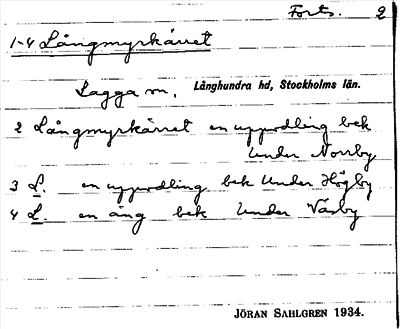 Forts. 2
1-4 Långmyrkärret
Lagga sn, Långhundra hd, Stockholms län.
2 Långmyrkärret en uppodling bek
under Norrby
3 L. en uppodling bek under Högby
4 L. en äng bek under Väsby
JÖRAN SAHLGREN 1934.